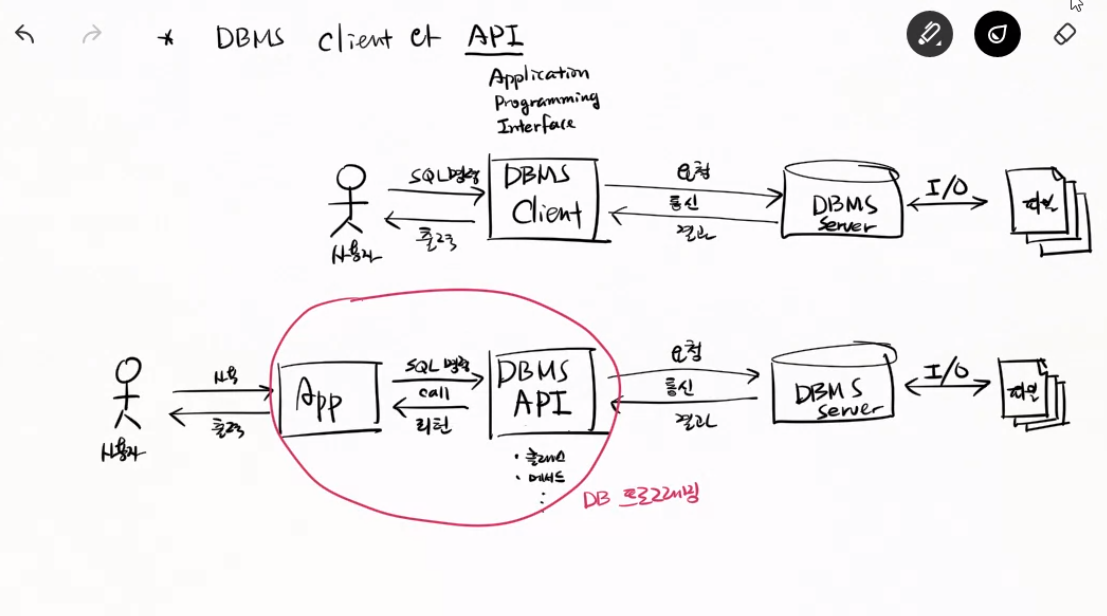 * DBMS Client 와 API
Application
Programming
Interface
SQL명령
출력
사용자
DBMS
Client
요청
통신
결과
DBMS
Server
I/O
파일
사용자
사용
출력
App
SQL명령
call
리턴
DBMS
API
• 클래스
• 메서드
⋮
요청
통신
결과
DBMS
Server
I/O
파일
DB 프로그래밍